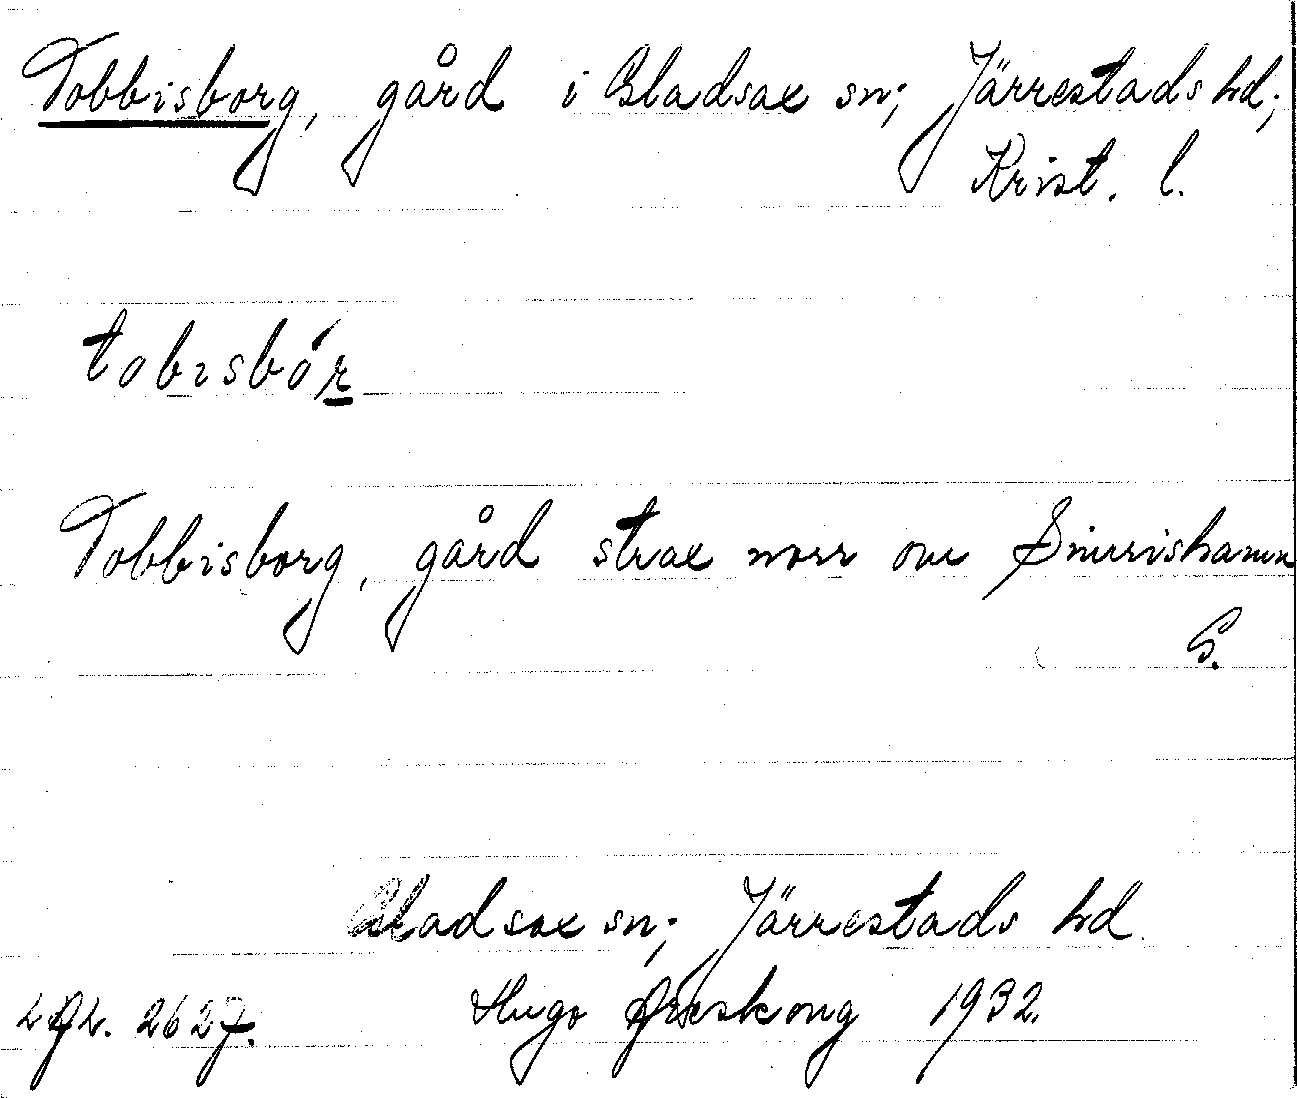 Tobbisborg, gård i Gladsax sn; Järrestads hd;
Krist. l.
tobısbór
Tobbisborg, gård strax norr om Simrishamn
G.
Gladsax sn; Järrestads hd
2627. Hugo Areskoug 1932.